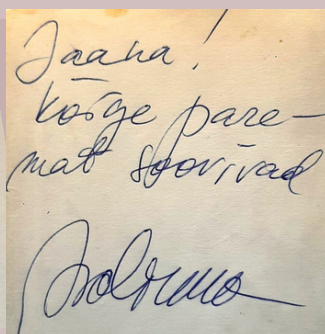 Jaana!
kõige pare-
mat soovivad